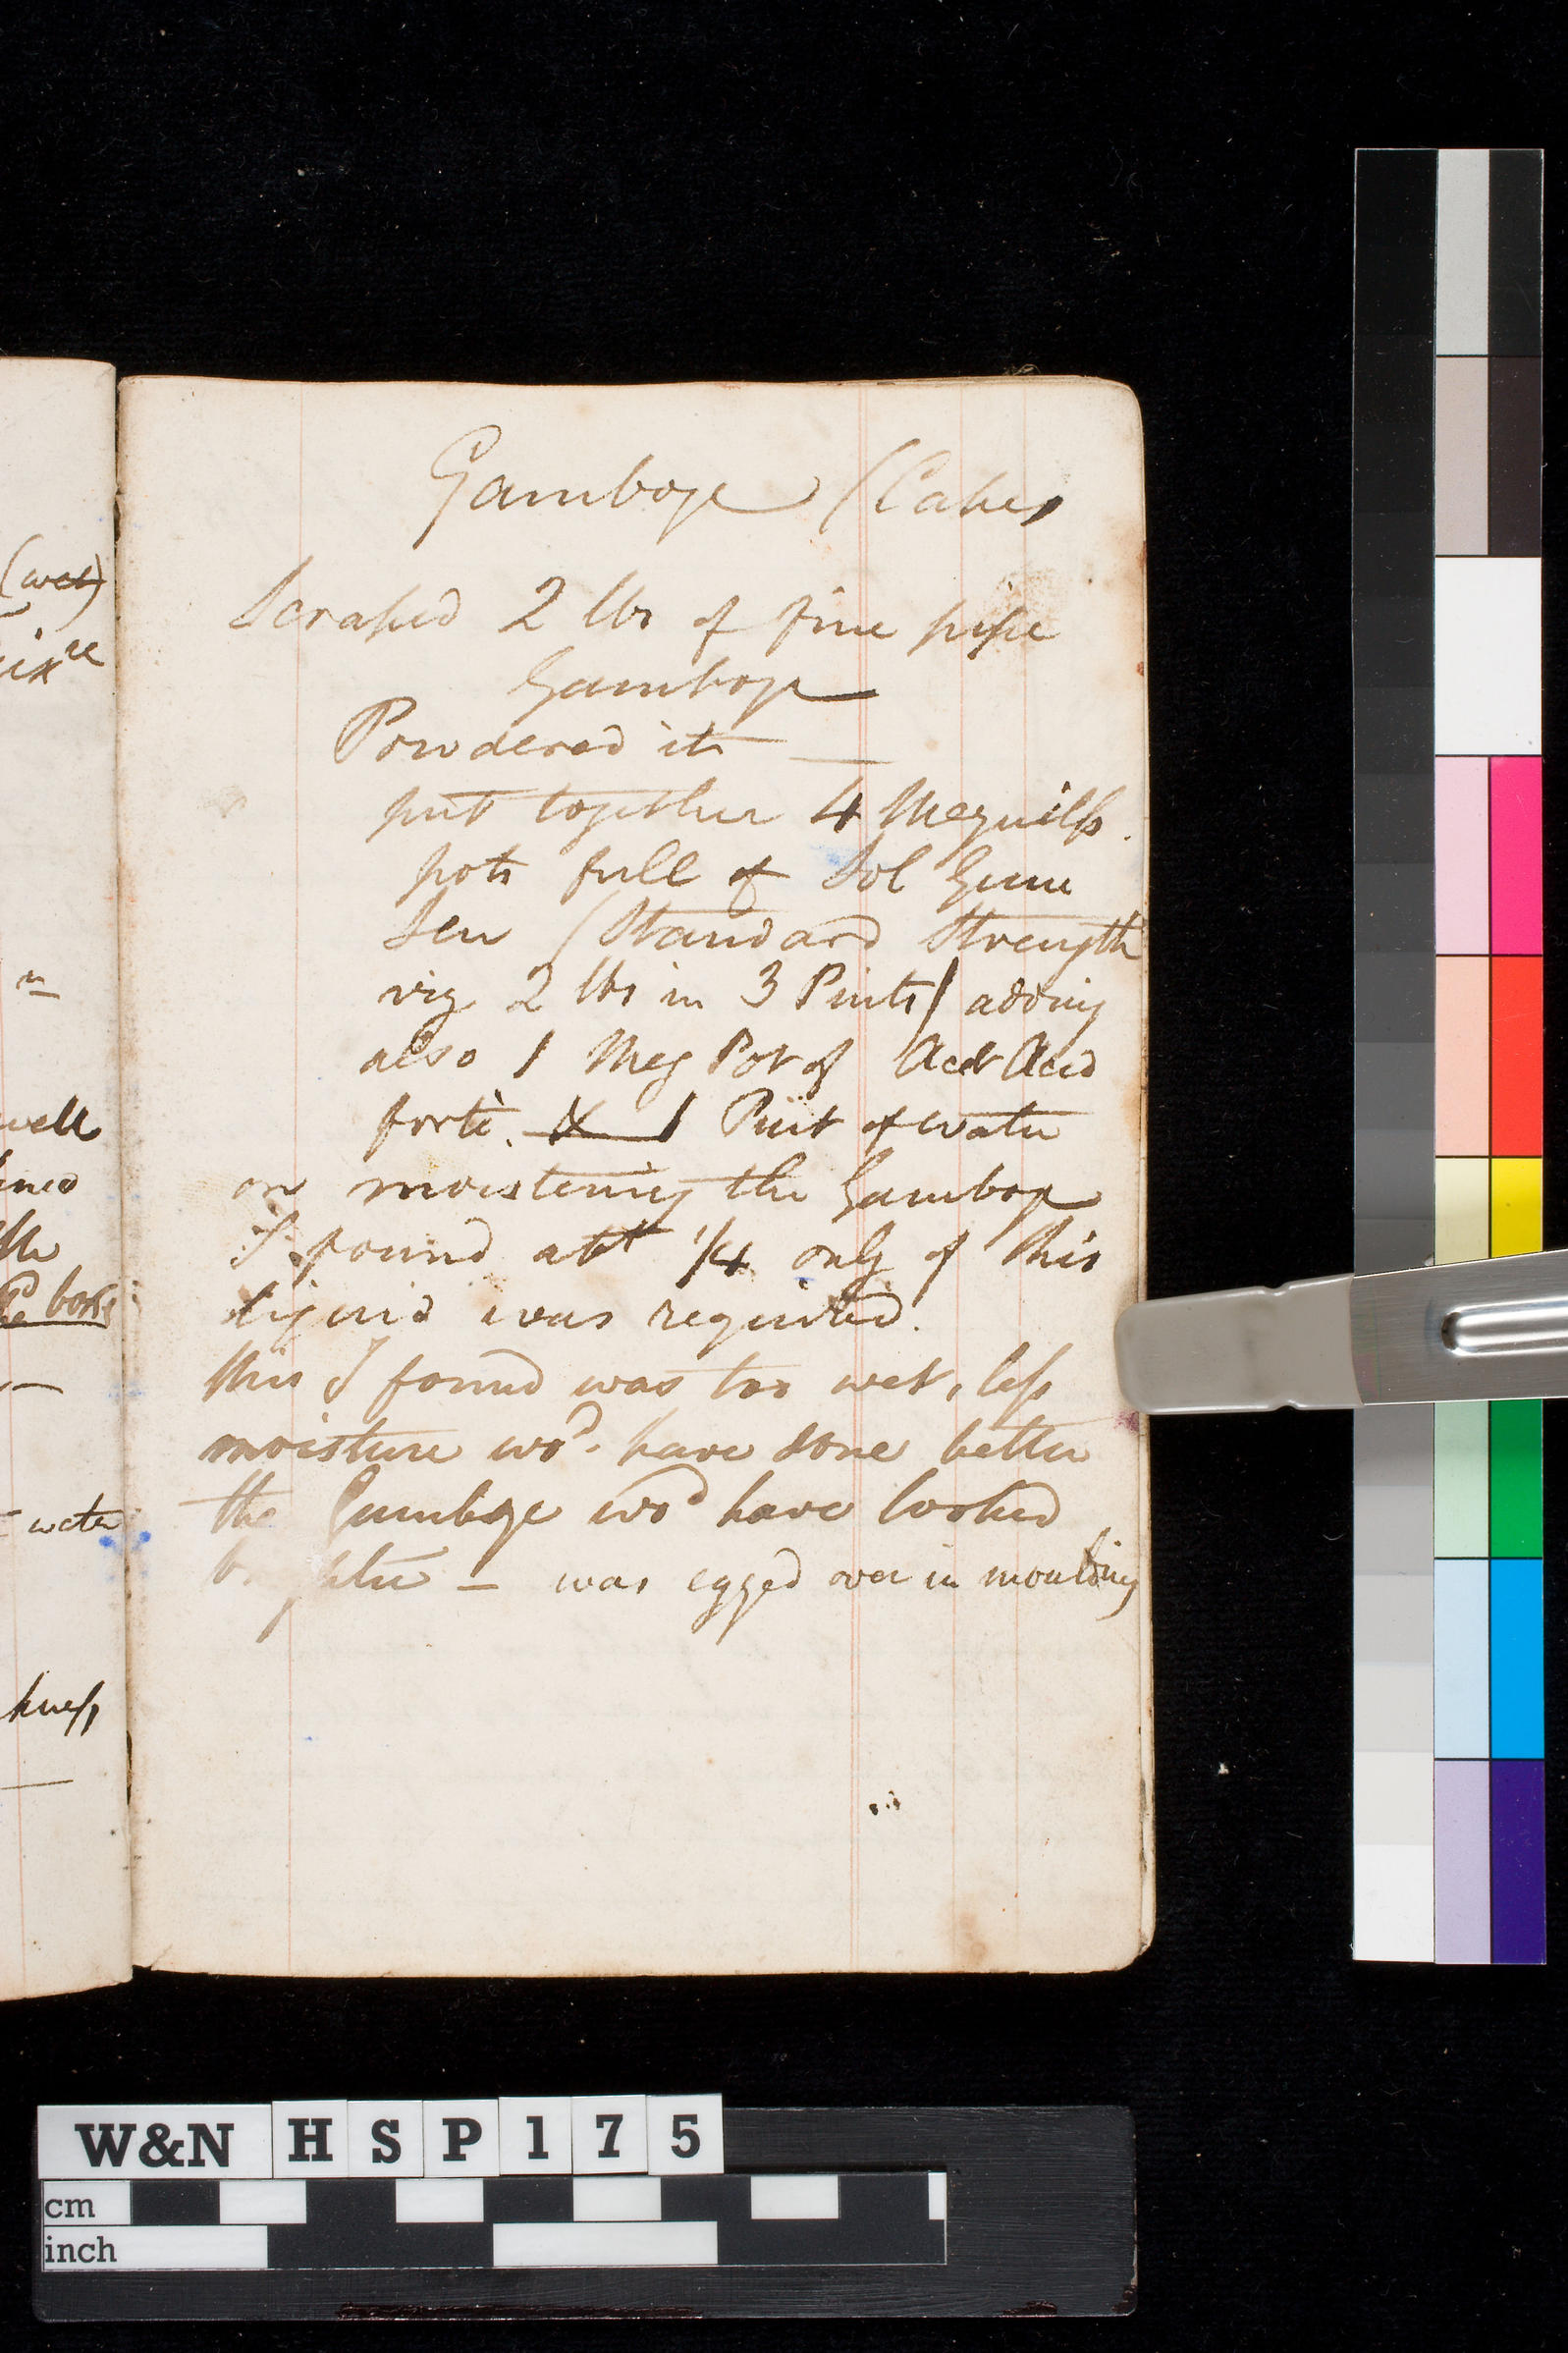 Gamboge (Cakes
Scraped 2 lbs of fine pipe
Gamboge
Powdered it —
put together 4 Meguilp
pots full of Sol Gum
Sen (Standard Strength
viz 2 lbs in 3 Pints) adding
also 1 Meg Pot of Acet Acid
forti. & 1 Pint of water
on moistening the Gamboge
I found abt 1/4 only of this
liquid was required.
this I found was too wet, less
moisture wod. have done better
the Gamboge wod have looked
— was egged over in moulding
(wet)
well
the
boxes
water
W&N H S P 1 7 5
cm
inch